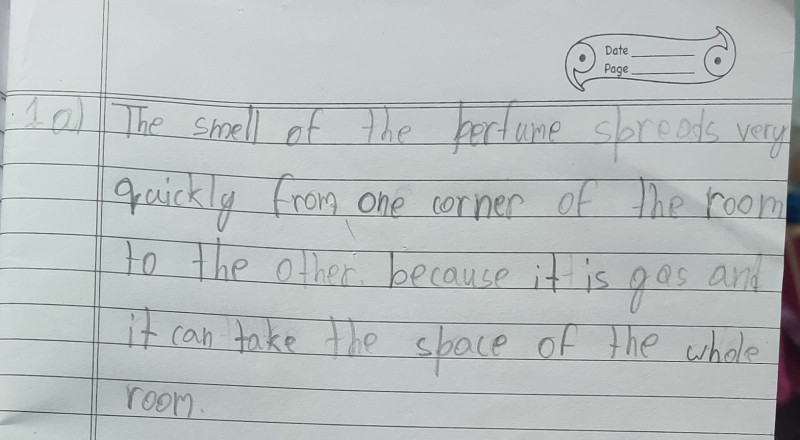 Date
Page
1a) The smell of the perfume spreads very
quickly from one corner of the room
to the other. because it is gas and
it can take the space of the whole
room.